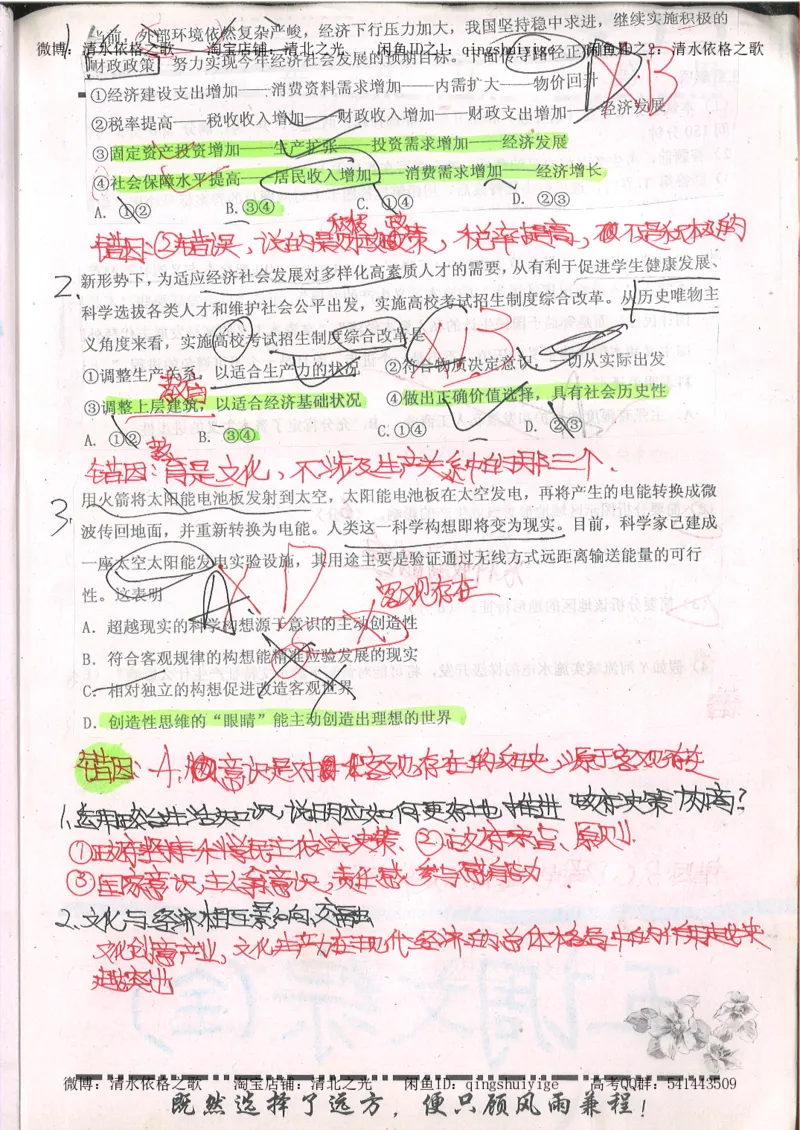 1.
当前，外部环境依然复杂严峻，经济下行压力加大，我国坚持稳中求进，继续实施积极的
微博：清水依格之歌 淘宝店铺：清北之光 闲鱼ID之1：qingshuiyige 闲鱼ID之2：清水依格之歌
财政政策，努力实现今年经济社会发展的预期目标。下面传导路径正确的是
①经济建设支出增加——消费资料需求增加——内需扩大——物价回升
②税率提高——税收收入增加——财政收入增加——财政支出增加——经济发展
③固定资产投资增加——生产扩张——投资需求增加——经济发展
④社会保障水平提高——居民收入增加——消费需求增加——经济增长
A. ①② B. ③④ C. ①④ D. ②③
B
积极 政
错因：②错误，说的是财政政策，税率提高，不是积极的
2.
新形势下，为适应经济社会发展对多样化高素质人才的需要，从有利于促进学生健康发展、
科学选拔各类人才和维护社会公平出发，实施高校考试招生制度综合改革。从历史唯物主
义角度来看，实施高校考试招生制度综合改革是
B
①调整生产关系，以适合生产力的状况 ②符合物质决定意识，一切从实际出发
教育
③调整上层建筑，以适合经济基础状况 ④做出正确价值选择，具有社会历史性
A. ①② B. ③④ C. ①④ D. ②③
错因：教育是文化，不涉及生产关系中的那三个.
3.
用火箭将太阳能电池板发射到太空，太阳能电池板在太空发电，再将产生的电能转换成微
波传回地面，并重新转换为电能。人类这一科学构想即将变为现实。目前，科学家已建成
一座太空太阳能发电实验设施，其用途主要是验证通过无线方式远距离输送能量的可行
性。这表明
A D
客观存在
A. 超越现实的科学构想源于意识的主动创造性
B. 符合客观规律的构想能精准应验发展的现实
C. 相对独立的构想促进改造客观世界
D. 创造性思维的“眼睛”能主动创造出理想的世界
错因：A.意识是对客观存在的反映，源于客观存在
1.运用政治生活知识，说明应如何更好地推进政府决策协商？
①政府坚持科学民主依法决策、②政府宗旨、原则.
③国家意识，主人翁意识，责任感，参与感有能力.
2.文化与经济相互影响，交融
文化创意产业，文化生产力在现代经济的总体格局中的作用越来
越突出
微博：清水依格之歌 淘宝店铺：清北之光 闲鱼ID：qingshuiyige 高考QQ群：541443509
既然选择了远方，便只顾风雨兼程！